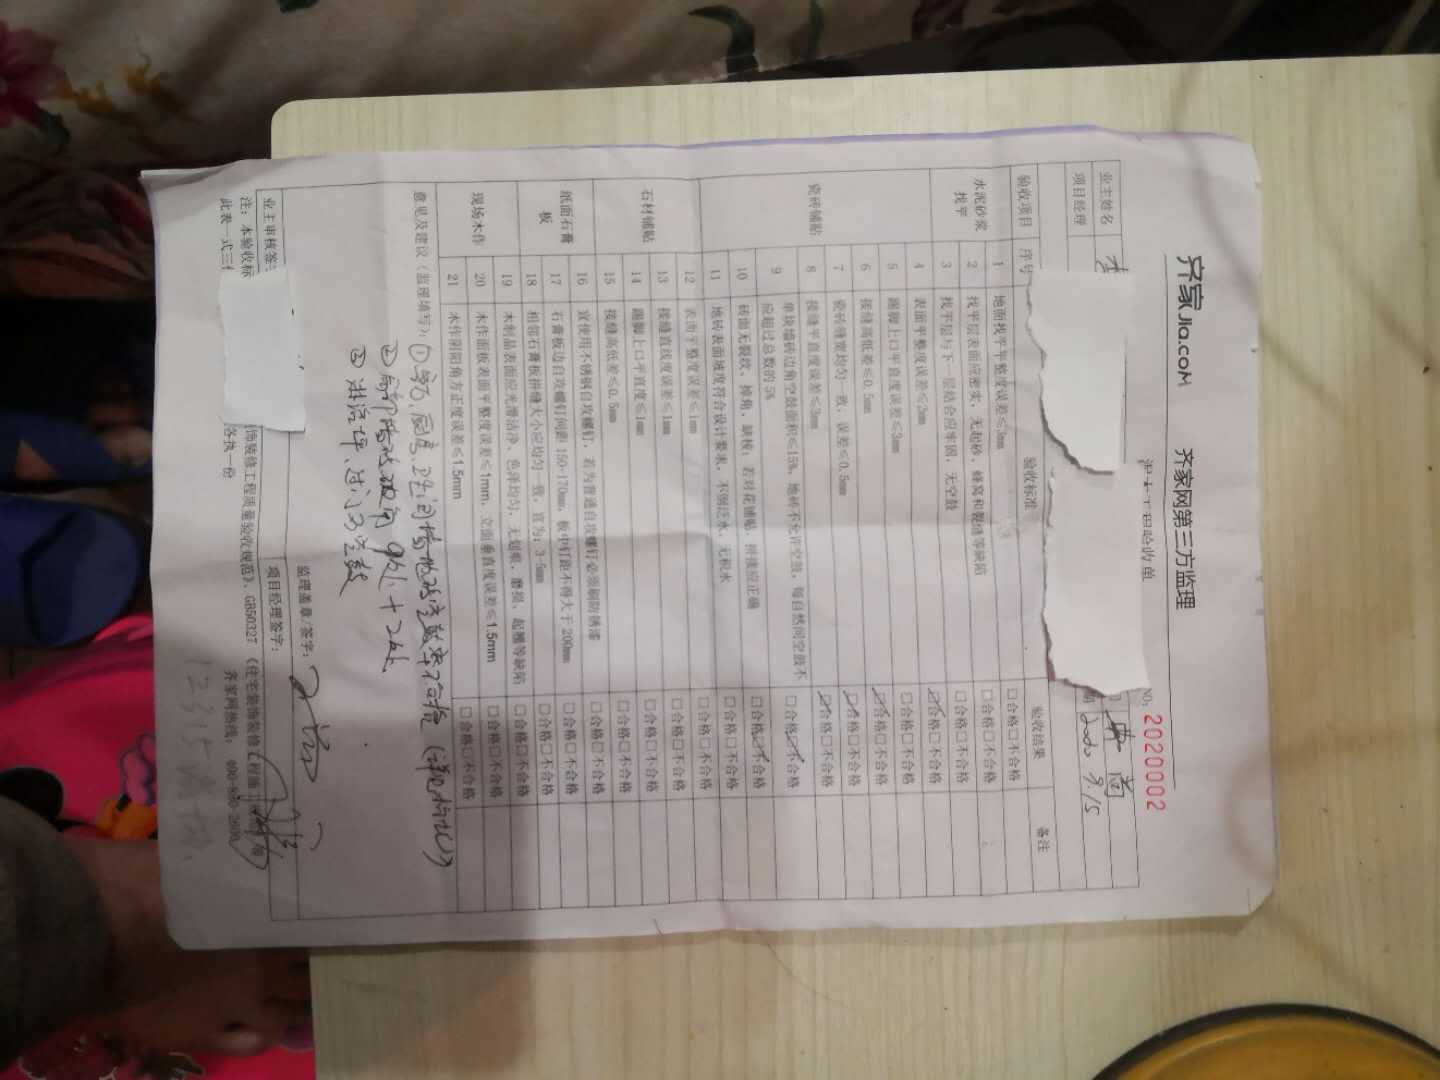 齐家 Jia.com 齐家网第三方监理
泥木工程验收单 NO: 2020002
业主姓名 李
项目经理 期 2020 9.15
验收项目 序号 验收标准 验收结果 备注
水泥砂浆找平 1 地面找平平整度误差≤3mm □合格□不合格
2 找平层表面应密实,无起砂、蜂窝和裂缝等缺陷 □合格□不合格
3 找平层与下一层结合应牢固,无空鼓 □合格□不合格
瓷砖铺贴 4 表面平整度误差≤2mm ☑合格□不合格
5 踢脚上口平直度误差≤3mm □合格□不合格
6 接缝高低差≤0.5mm ☑合格□不合格
7 瓷砖缝宽均匀一致,误差≤0.5mm ☑合格□不合格
8 接缝平直度误差≤3mm ☑合格□不合格
9 单块墙砖边角空鼓面积≤15%,地砖不允许空鼓,每自然间空鼓不应超过总数的5% □合格☑不合格
10 砖面无裂纹、掉角、缺棱;若对花铺贴,拼接应正确 □合格☑不合格
11 地砖表面坡度符合设计要求,不倒泛水,无积水 □合格□不合格
石材铺贴 12 表面平整度误差≤1mm □合格□不合格
13 接缝直线度误差≤1mm □合格□不合格
14 踢脚上口平直度≤1mm □合格□不合格
15 接缝高低差≤0.5mm □合格□不合格
纸面石膏板 16 宜使用不锈钢自攻螺钉,若为普通自攻螺钉必须刷防锈漆 □合格□不合格
17 石膏板边自攻螺钉间距150-170mm,板中钉距不得大于200mm □合格□不合格
18 相邻石膏板拼缝大小应均匀一致,宜为:3-5mm □合格□不合格
现场木作 19 木制品表面应光滑洁净,色泽均匀,无划痕、磨损、起翘等缺陷 □合格□不合格
20 木作面板表面平整度误差≤1mm,立面垂直度误差≤1.5mm □合格□不合格
21 木作阴阳角方正度误差≤1.5mm □合格□不合格
意见及建议(监理填写):① 客厅、厨房、卫生间墙地砖空鼓率不合格
②
③ 空鼓
监理盖章/签字:
业主审核签 项目经理签字:
注:本验收标 饰装修工程质量验收规范》、GB50327《住宅装饰装修工程施工规范
此表一式三 各执一份 齐家网热线:400-850-2600
12315